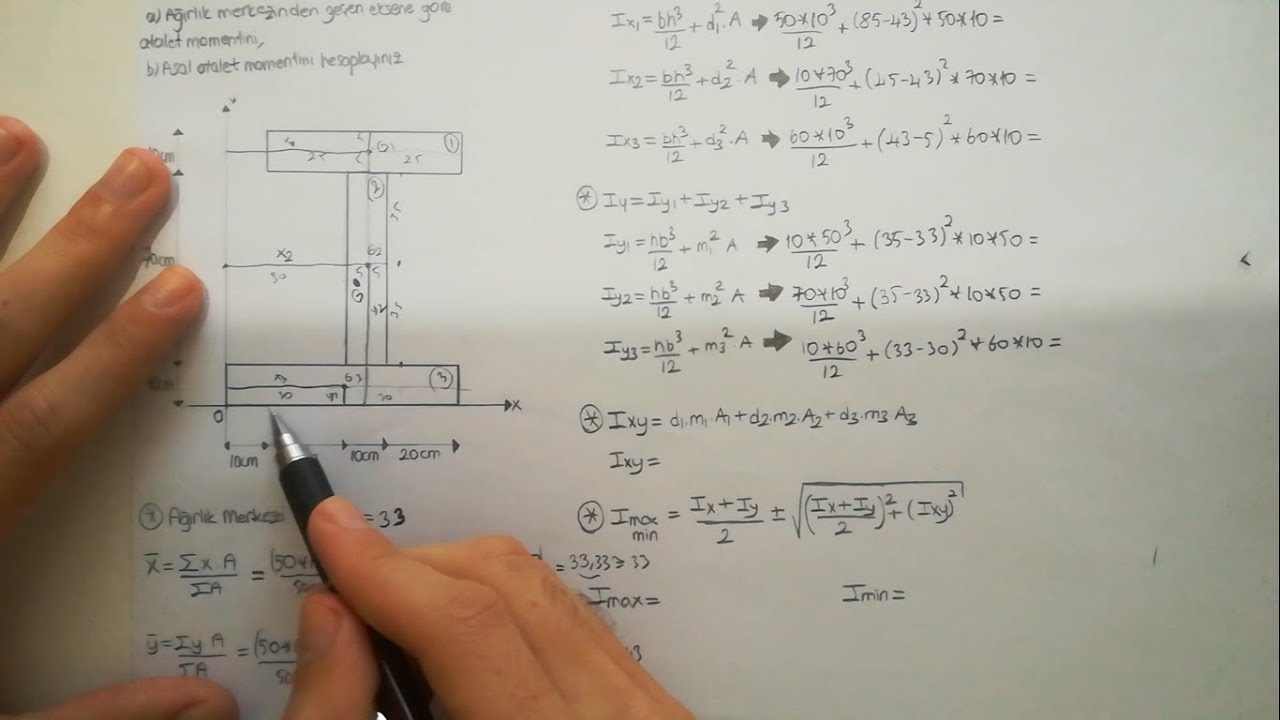 a) Ağırlık merkezinden geçen eksene göre
atalet momentini,
b) Asal atalet momentini hesaplayınız
y
G1
1
25
25
5
5
2
X2
30
G2
5
5
G
70cm
G3
3
30
30
0
X
10cm
10cm
20cm
* Ağırlık Merkezi = 33
x̄ = Σx.A / ΣA = (50*
= 33,33 ≅ 33
ȳ = Σy.A / ΣA = (50*
Ix1 = bh³/12 + d₁².A → 50*10³/12 + (85-43)²*50*10 =
Ix2 = bh³/12 + d₂².A → 10*70³/12 + (45-43)²*70*10 =
Ix3 = bh³/12 + d₃².A → 60*10³/12 + (43-5)²*60*10 =
* Iy = Iy1 + Iy2 + Iy3
Iy1 = hb³/12 + m₁² A → 10*50³/12 + (35-33)²*10*50 =
Iy2 = hb³/12 + m₂² A → 70*10³/12 + (35-33)²*10*50 =
Iy3 = hb³/12 + m₃².A → 10*60³/12 + (33-30)²*60*10 =
* Ixy = d₁.m₁.A₁ + d₂.m₂.A₂ + d₃.m₃.A₃
Ixy =
* Imax min = Ix+Iy/2 ± √((Ix+Iy/2)² + (Ixy)²)
Imax =
Imin =